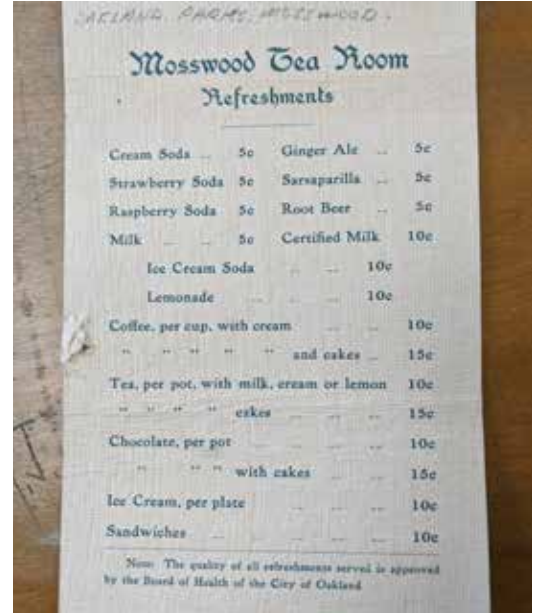 OAKLAND PARKS, MOSSWOOD.
Mosswood Tea Room
Refreshments
Cream Soda .. 5c Ginger Ale .. 5c
Strawberry Soda 5c Sarsaparilla .. 5c
Raspberry Soda 5c Root Beer .. 5c
Milk .. .. 5c Certified Milk 10c
Ice Cream Soda .. .. 10c
Lemonade .. .. .. 10c
Coffee, per cup, with cream .. .. 10c
" " " " " and cakes .. 15c
Tea, per pot, with milk, cream or lemon 10c
" " " " cakes .. .. .. 15c
Chocolate, per pot .. .. .. 10c
" " " with cakes .. .. 15c
Ice Cream, per plate .. .. .. 10c
Sandwiches .. .. .. .. .. 10c
Note: The quality of all refreshments served is approved
by the Board of Health of the City of Oakland